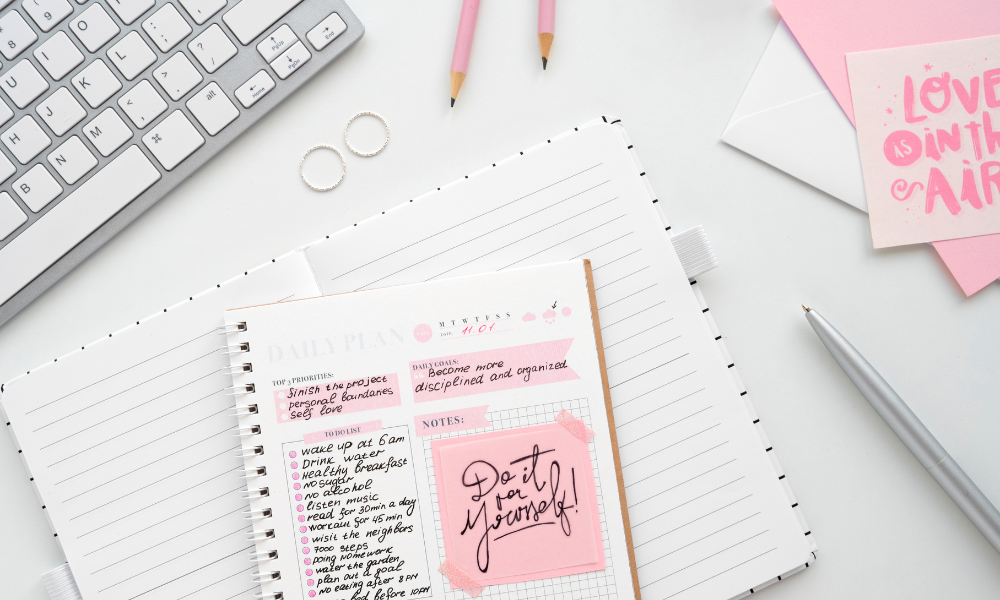 8
9
0
U
I
O
P
{ [
} ]
H
J
K
L
: ;
B
N
M
< ,
> .
? /
⌘
alt
PgUp
PgDn
Home
End
LOVE
AS in the
AIR
DAILY PLAN
M T W T F S S
DATE: 11.01
TOP 3 PRIORITIES:
finish the project
personal boundaries
self love
DAILY GOALS:
Become more
disciplined and organized
TO DO LIST
wake up at 6 am
Drink water
Healthy breakfast
no sugar
no alcohol
listen music
read for 30min a day
workout for 45 min
wisit the neighbors
7000 steps
doing homework
water the garden
plan out a goal
no eating after 8 PM
bed before 10PM
NOTES:
Do it
for
yourself!